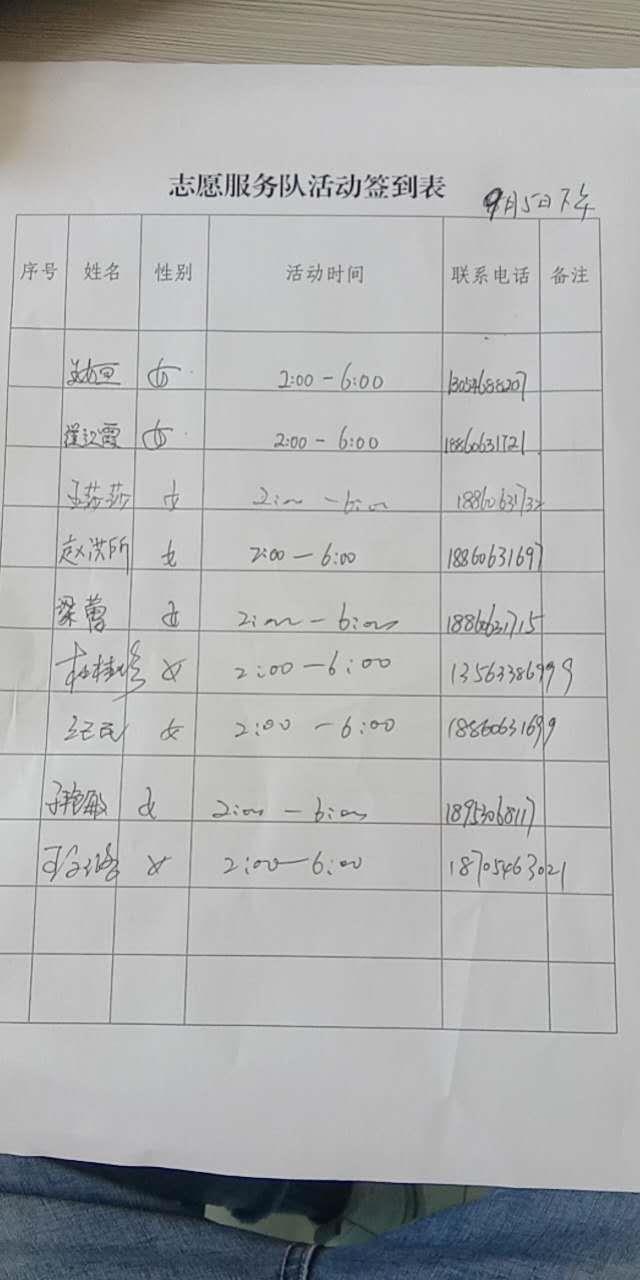 志愿服务队活动签到表
9月5日下午
序号 姓名 性别 活动时间 联系电话 备注
女 2:00-6:00 13054688207
崔江霞 女 2:00-6:00 18860631721
王莎莎 女 2:00-6:00 1886063173
赵洪所 女 2:00-6:00 18860631697
梁蕾 女 2:00-6:00 18860631715
女 2:00-6:00 13563386999
女 2:00-6:00 18860631699
于艳敏 女 2:00-6:00 18953068117
女 2:00-6:00 18705463021